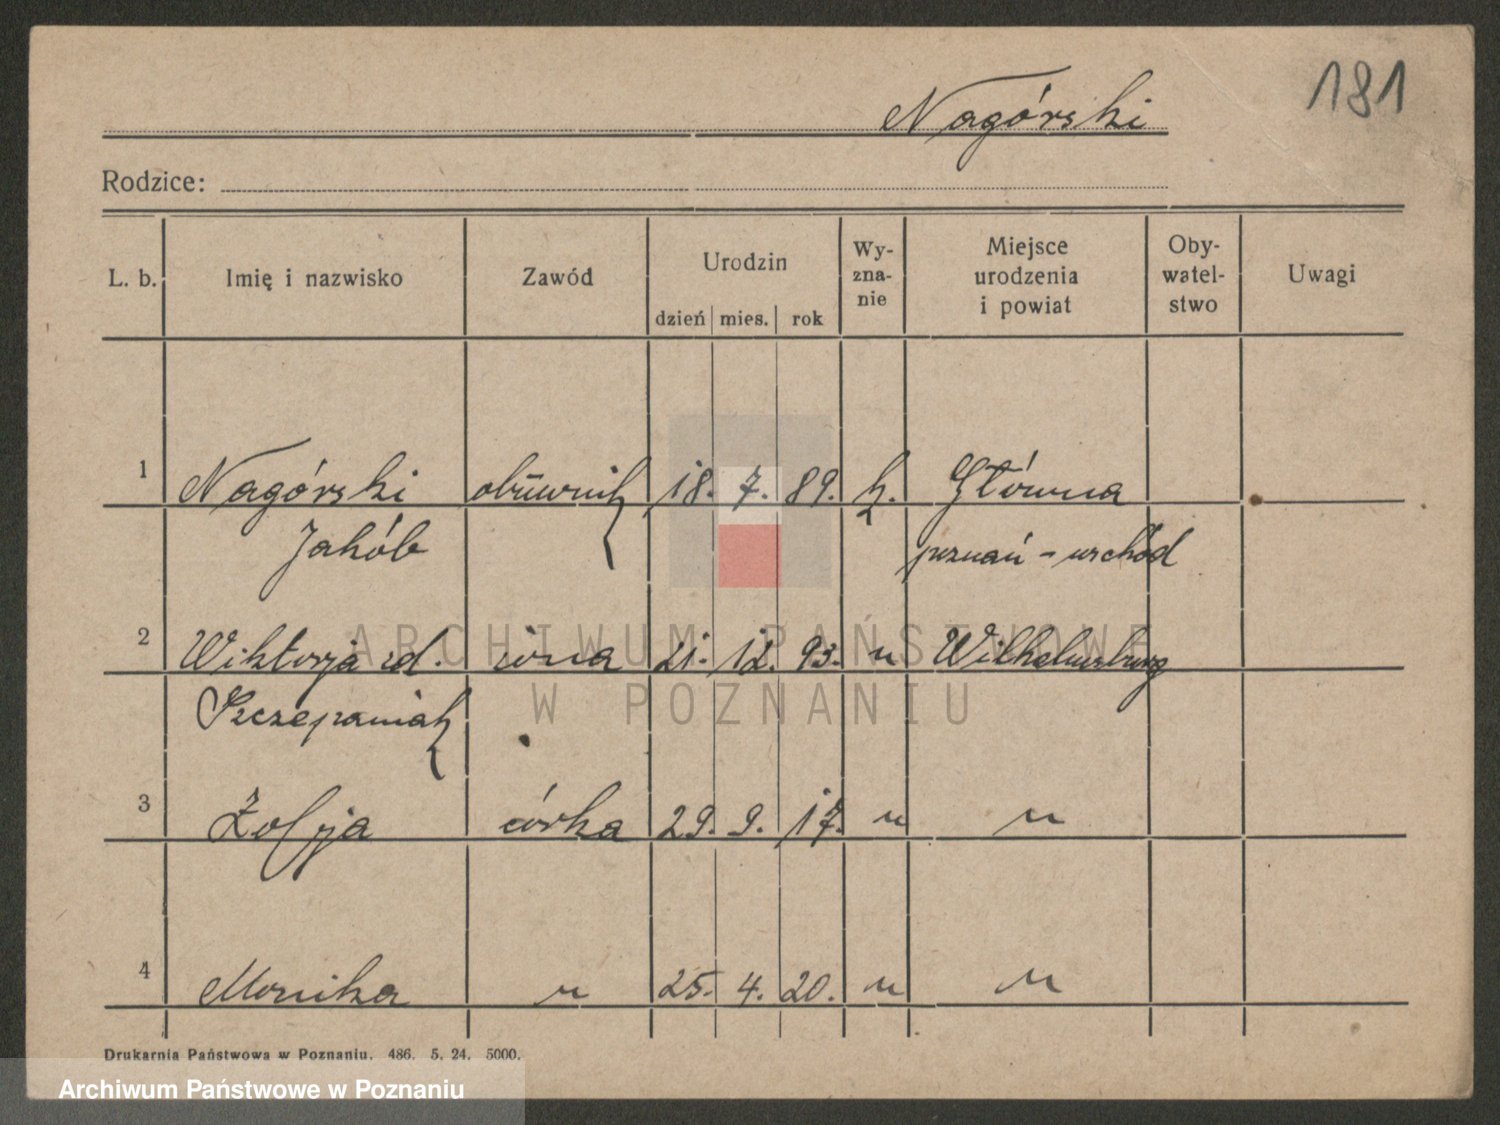 181
Nagórski
Rodzice:
L. b. Imię i nazwisko Zawód Urodzin dzień mies. rok Wy-zna-nie Miejsce urodzenia i powiat Oby-watel-stwo Uwagi
1 Nagórski obuwnik 18. 7. 89. k. Główna
Jakób poznań - wschód
2 Wiktorja zd. żona 21. 12. 93. " Wilhelmsburg
Szczepaniak
3 Zofja córka 29. 9. 17. " "
4 Monika " 25. 4. 20. " "
Drukarnia Państwowa w Poznaniu. 486. 5. 24. 5000.
ARCHIWUM PAŃSTWOWE
W POZNANIU
Archiwum Państwowe w Poznaniu